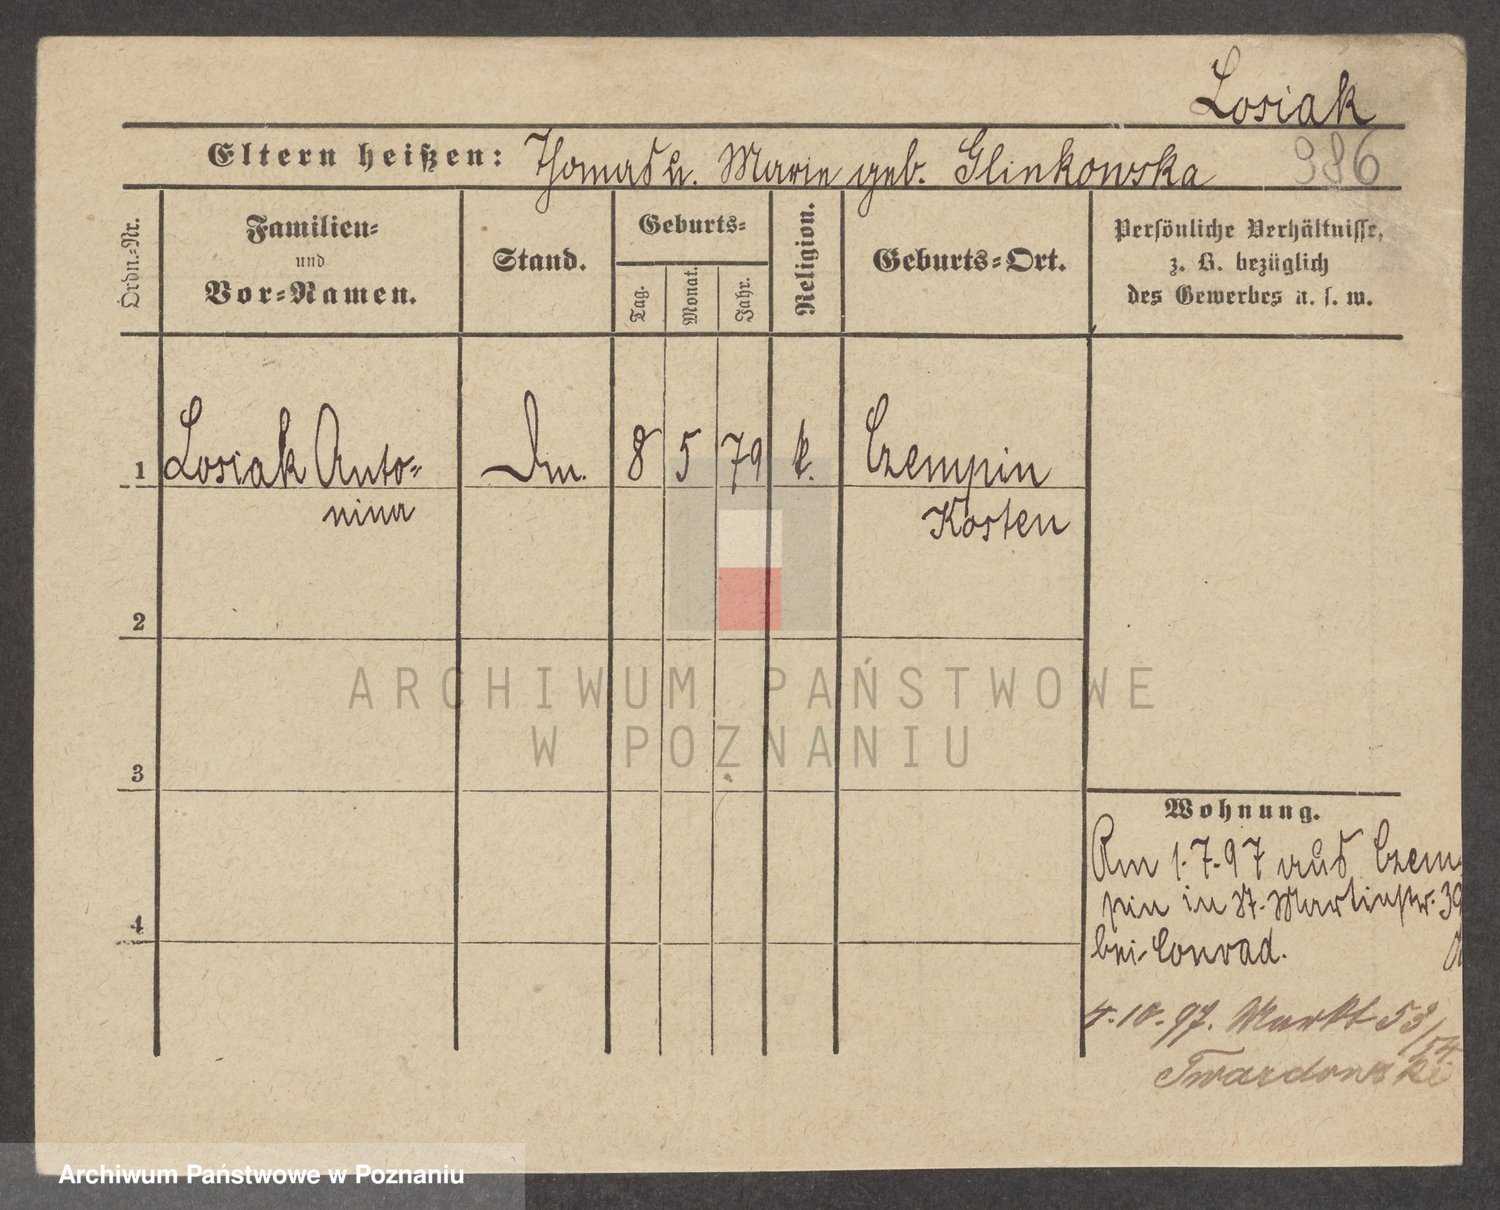 Losiak
986
Eltern heißen: Thomas u. Marie geb. Glinkowska
Ordn.-Nr.
Familien-
und
Vor-Namen.
Stand.
Geburts-
Tag.
Monat.
Jahr.
Religion.
Geburts-Ort.
Persönliche Verhältnisse,
z. B. bezüglich
des Gewerbes u. s. w.
1 Losiak Anto- Dm. 8 5 79 k. Czempin
nina Kosten
2
3
4
ARCHIWUM PAŃSTWOWE
W POZNANIU
Wohnung.
Am 1.7.97 aus Czem
pin in St. Martinstr. 39
bei Conrad.
4.10.97. Markt 53/
54
Twardowski
Archiwum Państwowe w Poznaniu